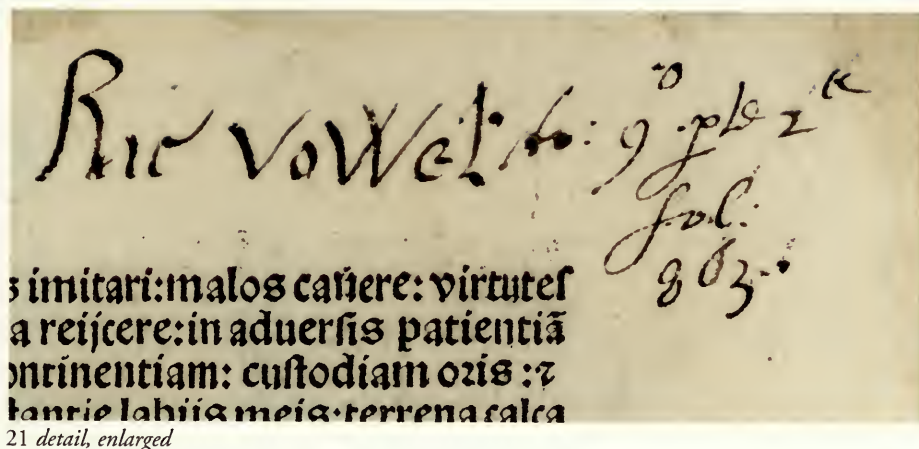 Ric VoWel 9º
fol:
863.
s imitari:malos cauere: virtuteſ
a reijcere:in aduerſis patientiã
ontinentiam: cuſtodiam oꝛis :⁊
tantie labiis meis·terrena calca
21 detail, enlarged